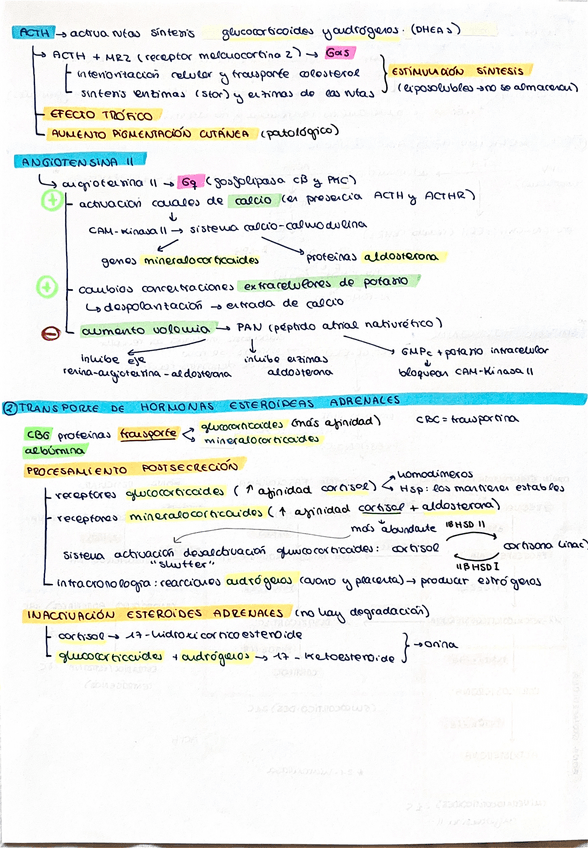 ACTH → activa rutas síntesis glucocorticoides y andrógenos. (DHEAS)
↳ ACTH + MR2 (receptor melanocortina 2) → Gαs
interiorización celular y transporte colesterol
síntesis enzimas (Star) y enzimas de las rutas
ESTIMULACIÓN SÍNTESIS
(liposolubles → no se almacenan)
EFECTO TRÓFICO
AUMENTO PIGMENTACIÓN CUTÁNEA (patológico)
ANGIOTENSINA II
↳ angiotensina II → Gq (fosfolipasa CB y PKC)
+ activación canales de calcio (en presencia ACTH y ACTHR)
↓
CAM-Kinasa II → sistema calcio-calmodulina
genes mineralocorticoides
proteínas aldosterona
+ cambios concentraciones extracelulares de potasio
↳ despolarización → entrada de calcio
- aumento volemia → PAN (péptido atrial natiurético)
inhibe eje renina-angiotensina-aldosterona
inhibe enzimas aldosterona
GMPc + potasio intracelular
↓
bloquean CAM-Kinasa II
② TRANSPORTE DE HORMONAS ESTEROIDEAS ADRENALES
CBG proteínas transporte
albúmina
glucocorticoides (más afinidad)
mineralocorticoides
CBC = transportina
PROCESAMIENTO POSTSECRECIÓN
receptores glucocorticoides (↑ afinidad cortisol)
homodímeros
Hsp: los mantienen estables
receptores mineralocorticoides (↑ afinidad cortisol + aldosterona)
más abundante
Sistema activación desactivación glucocorticoides: cortisol
"shutter"
11βHSD II
11βHSD I
cortisona (inac)
intracrinología: reacciones andrógenos (ovario y placenta) → producen estrógenos
INACTIVACIÓN ESTEROIDES ADRENALES (no hay degradación)
cortisol → 17-hidroxicorticoesteroide
glucocorticoides + andrógenos → 17-ketoesteroide
→ orina